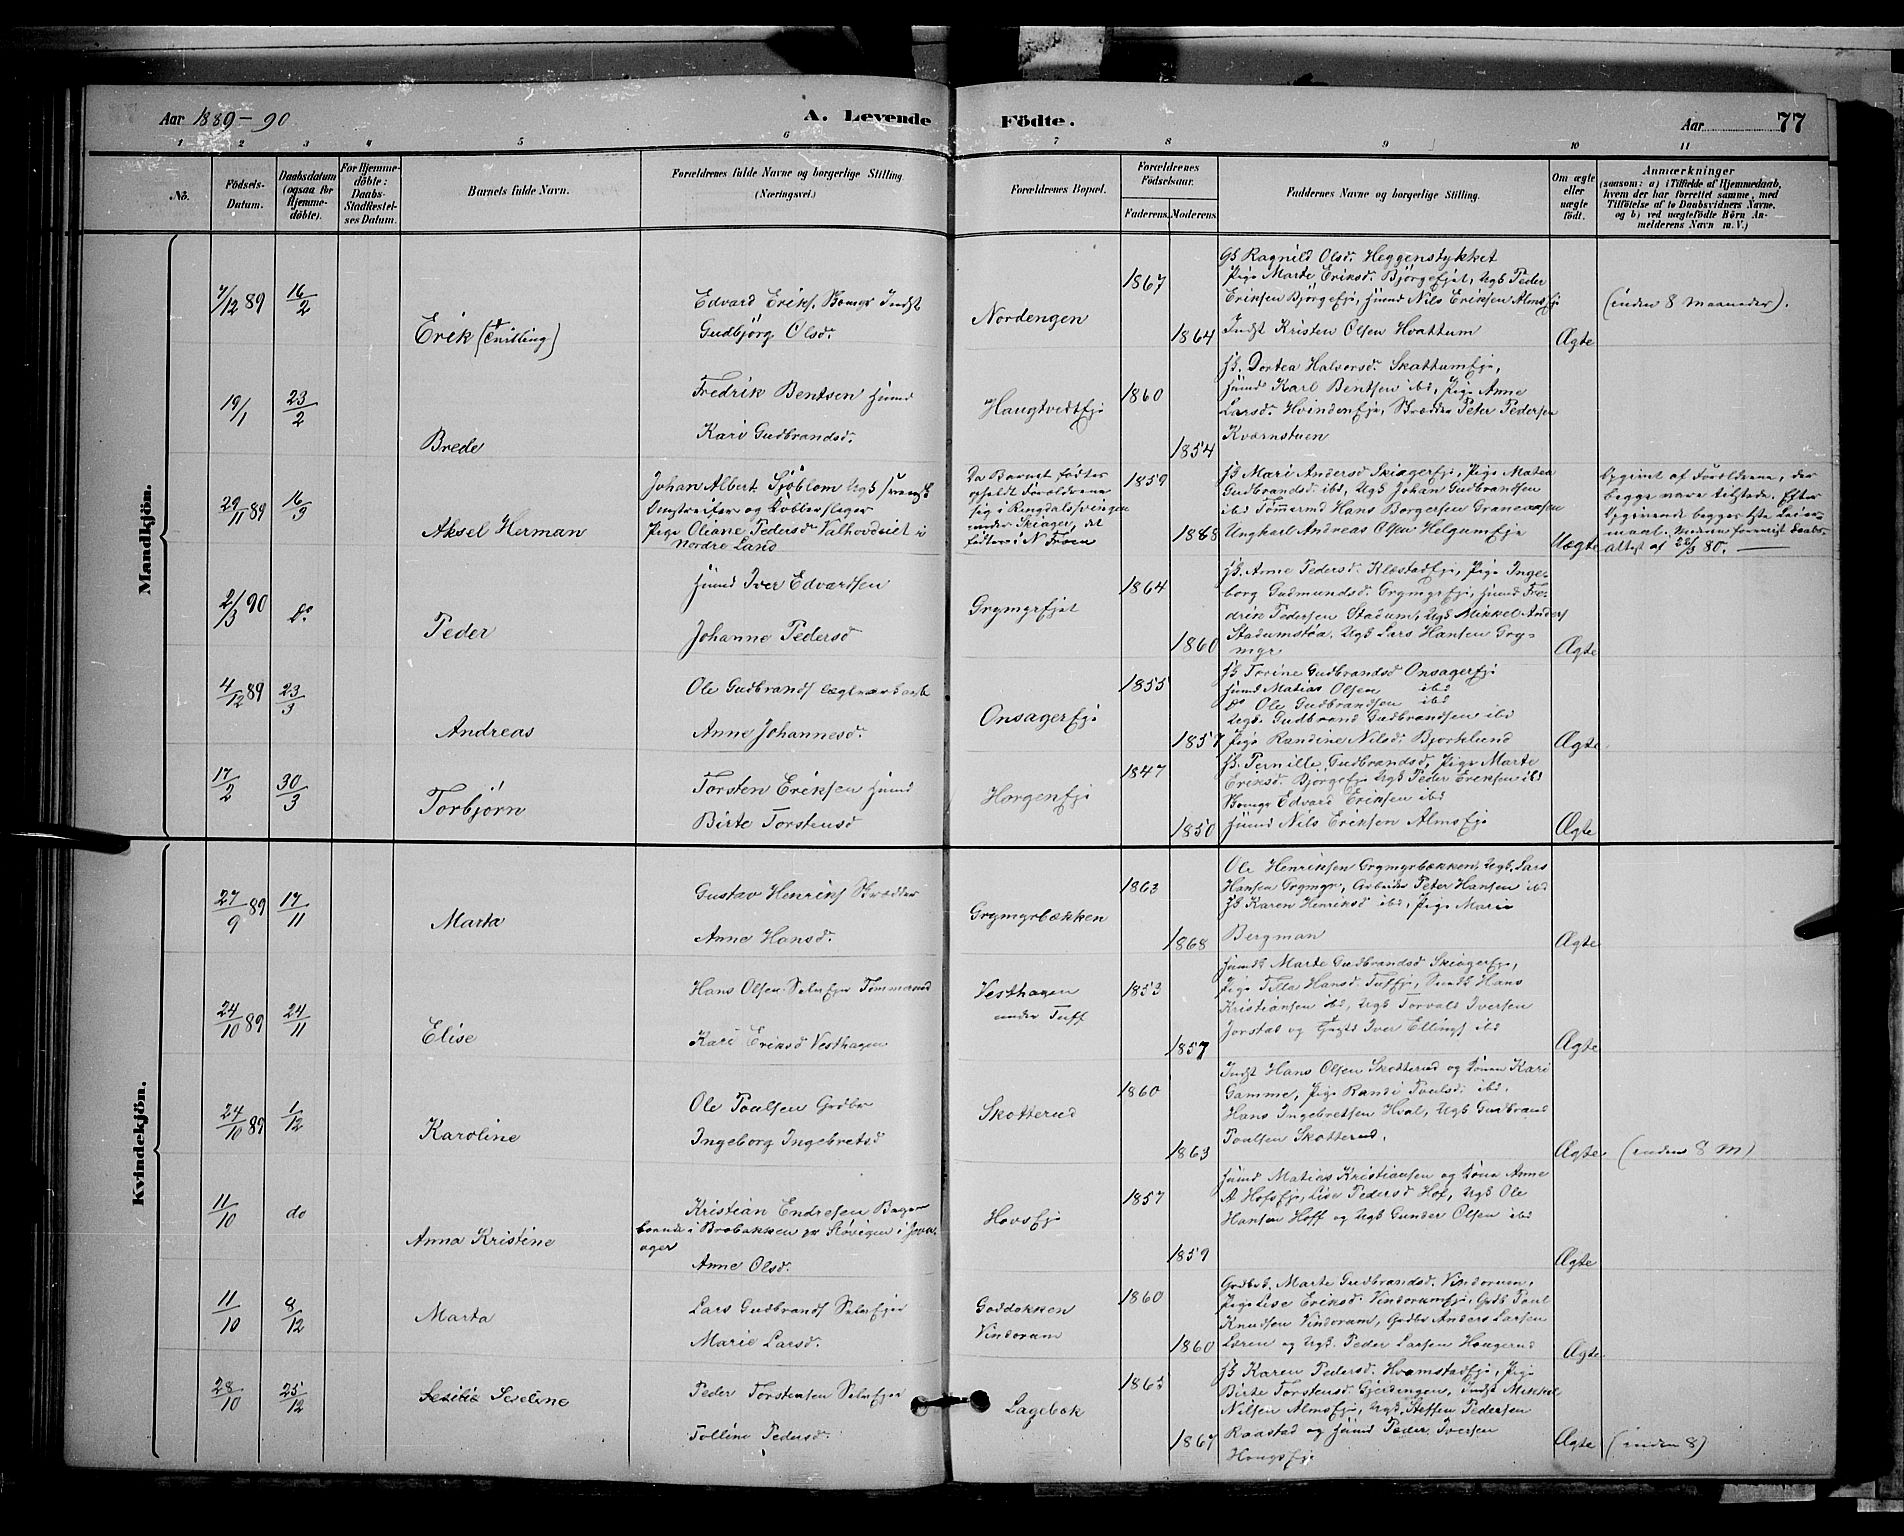 Aar 1889-90
A. Levende
Födte.
Aar 77
1 2 3 4 5 6 7 8 9 10 11
No.
Födsels-Datum.
Daabsdatum (ogsaa for Hjemme-döbte).
For Hjemme-döbte: Daabs-Stadfæstel-ses Datum.
Barnets fulde Navn.
Forældrenes fulde Navne og borgerlige Stilling (Næringsvei.)
Forældrenes Bopæl.
Forældrenes Födselsaar.
Faderens. Moderens.
Faddernes Navne og borgerlige Stilling.
Om ægte eller uægte födt.
Anmærkninger
(saasom: a) i Tilfælde af Hjemmedaab,
hvem der har forrettet samme, med
Tilföielse af to Daabsvidners Navne,
og b) ved uægtefödte Börn An-
melderens Navn m. V.)
Mandkjön.
7/12 89
16/2
Erik (Tvilling)
Edvard Eriks. Indst
Gudbjörg Olsd.
Nordengen
1867
1864
Gb Ragnild Olsd. Heggenstykket
Pige Marte Eriksd. Björgeejet, Ugk Peder
Eriksen Björgeeje, Huusmd Nils Eriksen Almseje
Indst Kristen Olsen Hvattum
Ægte
(inden 8 Maaneder).
19/1
23/2
Brede
Fredrik Bentsen Huusmd
Kari Gudbrandsd.
Haugtvedteje
1860
1854
Hb. Dortea Halvorsd. Skattumeje,
Huusmd Karl Bentsen ibd, Pige Anne
Larsd. Hvindeneje, Skrædder Peter Pedersen
Kværnstuen
29/11 89
16/3
Aksel Herman
Johan Albert Sjöblom Ugk svensk
Omstreifer og Kobberslager
Pige Oleane Pedersd Valhovdeiet i
Nordre Land
Da Barnet födtes
opholdt Forældrene
sig i Ringdalssvingen
under Skiager, det
födtes i N Froen
1859
1868
Hb Mari Andersd Skiagereje, Pige Matea
Gudbrandsd. ibd, Ugk Johan Gudbrandsen
ibd Tömmermd Hans Borgersen Graneaasen
Ungkarl Andreas Olsen Helgumeje
Uægte
Opgivet af Forældrene, der
begge vare tilstede. Efter
Opgivende begges 1ste Leier-
maal. Moderen forevist Daabs-
attest af 28/3 80.
2/3 90
do
Peder
Huusmd Iver Edvardsen
Johanne Pedersd
Grymyrejet
1864
1860
Hb. Anne Pedersd. Klæstadeje, Pige Inge-
borg Gudmundsd. Grymyreje, Huusmd Fre-
drik Pedersen Stadum, Ugk Mikkel Anders
Stadumstöa, Ugk Lars Hansen Gry-
myr
Ægte
4/12 89
23/3
Andreas
Ole Gudbrands
Anne Johannesd.
Onsagereje
1855
1857
Hb Torine Gudbrandsd Onsagereje
Huusmd Matias Olsen ibd
do Ole Gudbrandsen ibd
Ugk. Gudbrand Gudbrandsen ibd
Pige Randine Nilsd. Bjorklund
Ægte
17/2
30/3
Torbjörn
Torsten Eriksen Huusmd
Birte Torstensd
Horgeneje
1847
1850
Hb. Pernille Gudbrandsd, Pige Marte
Eriksd. Björgeeje Ugk Peder Eriksen ibd
Edvard Eriksen ibd
Huusmd Nils Eriksen Almseje
Ægte
Kvindekjön.
27/9 89
17/11
Marta
Gustav Henriks Skrædder
Anne Hansd.
Grymyrbækken
1863
1868
Ole Henriksen Grymyrbækken, Ugk, Lars
Hansen Grymyr, Arbeider Peter Hansen ibd
Hb Karen Henriksd ibd, Pige Marie
Bergman
Ægte
24/10 89
24/11
Elise
Hans Olsen Selveier Tömmerud
Kari Eriksd Vesthagen
Vesthagen
under Tuff
1853
1857
Marte Gudbrandsd Skiagereje,
Pige Tilla Hansd. Tuffeje, Hans
Kristiansen ibd, Ugk Torvald Iversen
Jorstad og Iver Ellings ibd
Ægte
24/10 89
1/12
Karoline
Ole Poulsen Grdbr
Ingeborg Ingebretsd
Skotterud
1860
1863
Indst Hans Olsen Skotterud og Konen Kari
Gamme, Pige Randi Poulsd. ibd.
Hans Ingebretsen Hval, Ugk Gudbrand
Poulsen Skotterud.
Ægte.
(inden 8 M)
11/10
do
Anna Kristine
Kristian Endresen Bager
boende i Brobakken pr Slövigen i Jevn-
ager
Anne Olsd.
Hovseje
1857
1859
Huusmd Matias Kristiansen og Kona Anne
A Hofseje, Lise Pedersd Hof, Ugk Ole
Hansen Hoff og Ugk Gunder Olsen ibd
Ægte
11/10
8/12
Marta
Lars Gudbrands Selveier
Marie Larsd.
Goddokken
Vindorum
1860
1860
Marte Gudbrandsd. Vindorum,
Pige Lise Eriksd. Vindorumeje, Grdb Poul
Knudsen Vindorum, Grdbr Anders Larsen
Læren og Ugk. Peder Larsen Haugerud
Ægte.
28/10
25/12
Seveline
Peder Torstensen Selveier
Tolline Pedersd.
Lagebek
1863
1867
Hb Karen Pedersd. Hvamstadeje, Pige
Birte Torstensd. Gjerdingen, Indst Mikkel
Nilsen Almseje, Ugk, Steffen Pedersen
Raastad og Huusmd Peder Iversen
Haugseje
Ægte
(inden 8)